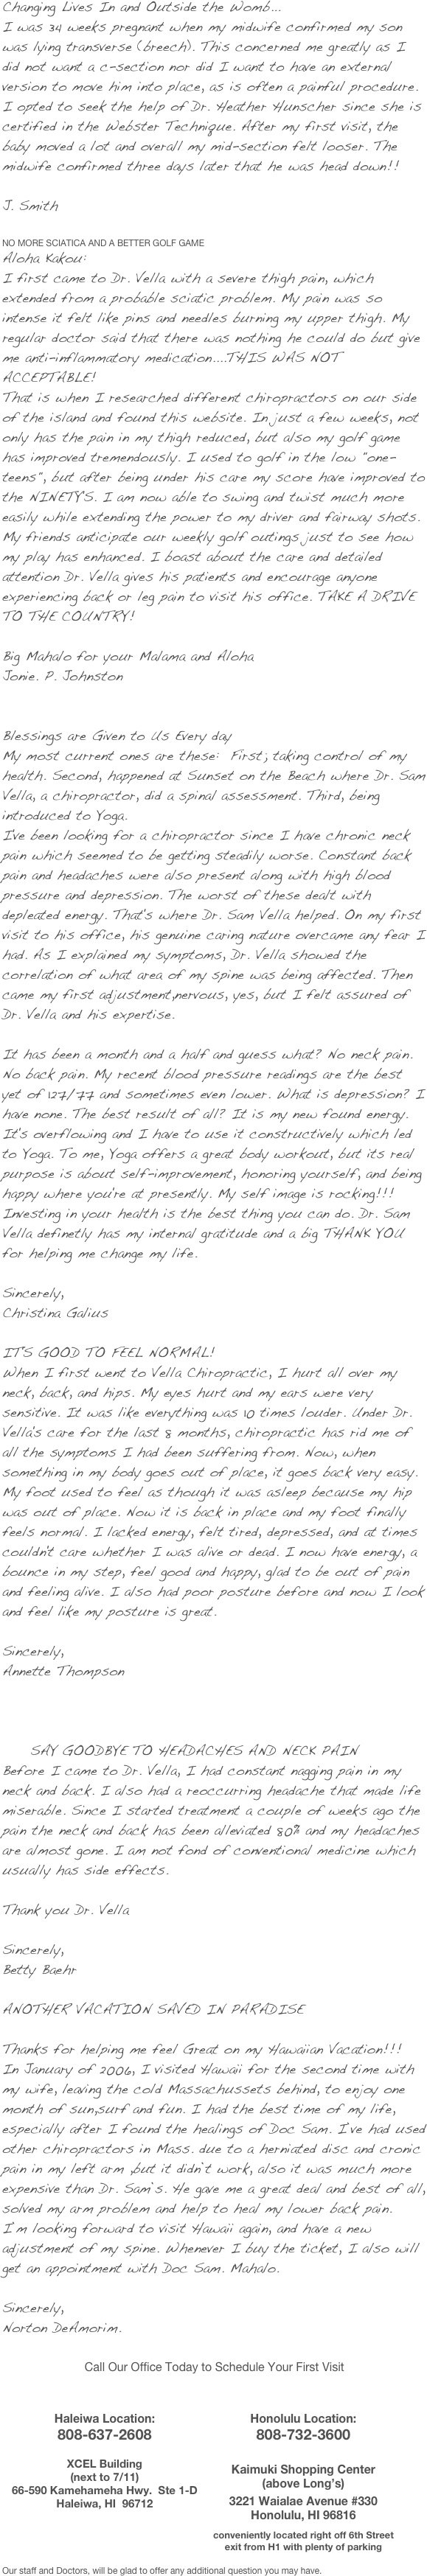 Changing Lives In and Outside the Womb...
I was 34 weeks pregnant when my midwife confirmed my son
was lying transverse (breech). This concerned me greatly as I
did not want a c-section nor did I want to have an external
version to move him into place, as is often a painful procedure.
I opted to seek the help of Dr. Heather Hunscher since she is
certified in the Webster Technique. After my first visit, the
baby moved a lot and overall my mid-section felt looser. The
midwife confirmed three days later that he was head down!!
J. Smith
NO MORE SCIATICA AND A BETTER GOLF GAME
Aloha Kakou:
I first came to Dr. Vella with a severe thigh pain, which
extended from a probable sciatic problem. My pain was so
intense it felt like pins and needles burning my upper thigh. My
regular doctor said that there was nothing he could do but give
me anti-inflammatory medication....THIS WAS NOT
ACCEPTABLE!
That is when I researched different chiropractors on our side
of the island and found this website. In just a few weeks, not
only has the pain in my thigh reduced, but also my golf game
has improved tremendously. I used to golf in the low "one-
teens", but after being under his care my score have improved to
the NINETY'S. I am now able to swing and twist much more
easily while extending the power to my driver and fairway shots.
My friends anticipate our weekly golf outings just to see how
my play has enhanced. I boast about the care and detailed
attention Dr. Vella gives his patients and encourage anyone
experiencing back or leg pain to visit his office. TAKE A DRIVE
TO THE COUNTRY!
Big Mahalo for your Malama and Aloha
Jonie. P. Johnston
Blessings are Given to Us Every day
My most current ones are these:  First; taking control of my
health. Second, happened at Sunset on the Beach where Dr. Sam
Vella, a chiropractor, did a spinal assessment. Third, being
introduced to Yoga.
I've been looking for a chiropractor since I have chronic neck
pain which seemed to be getting steadily worse. Constant back
pain and headaches were also present along with high blood
pressure and depression. The worst of these dealt with
depleated energy. That's where Dr. Sam Vella helped. On my first
visit to his office, his genuine caring nature overcame any fear I
had. As I explained my symptoms, Dr. Vella showed the
correlation of what area of my spine was being affected. Then
came my first adjustment,nervous, yes, but I felt assured of
Dr. Vella and his expertise.
It has been a month and a half and guess what? No neck pain.
No back pain. My recent blood pressure readings are the best
yet of 127/77 and sometimes even lower. What is depression? I
have none. The best result of all? It is my new found energy.
It's overflowing and I have to use it constructively which led
to Yoga. To me, Yoga offers a great body workout, but its real
purpose is about self-improvement, honoring yourself, and being
happy where you're at presently. My self image is rocking!!!
Investing in your health is the best thing you can do. Dr. Sam
Vella definetly has my internal gratitude and a big THANK YOU
for helping me change my life.
Sincerely,
Christina Galius
IT'S GOOD TO FEEL NORMAL!
When I first went to Vella Chiropractic, I hurt all over my
neck, back, and hips. My eyes hurt and my ears were very
sensitive. It was like everything was 10 times louder. Under Dr.
Vella's care for the last 8 months, chiropractic has rid me of
all the symptoms I had been suffering from. Now, when
something in my body goes out of place, it goes back very easy.
My foot used to feel as though it was asleep because my hip
was out of place. Now it is back in place and my foot finally
feels normal. I lacked energy, felt tired, depressed, and at times
couldn't care whether I was alive or dead. I now have energy, a
bounce in my step, feel good and happy, glad to be out of pain
and feeling alive. I also had poor posture before and now I look
and feel like my posture is great.
Sincerely,
Annette Thompson
SAY GOODBYE TO HEADACHES AND NECK PAIN
Before I came to Dr. Vella, I had constant nagging pain in my
neck and back. I also had a reoccurring headache that made life
miserable. Since I started treatment a couple of weeks ago the
pain the neck and back has been alleviated 80% and my headaches
are almost gone. I am not fond of conventional medicine which
usually has side effects.
Thank you Dr. Vella
Sincerely,
Betty Baehr
ANOTHER VACATION SAVED IN PARADISE
Thanks for helping me feel Great on my Hawaiian Vacation!!!
In January of 2006, I visited Hawaii for the second time with
my wife, leaving the cold Massachussets behind, to enjoy one
month of sun,surf and fun. I had the best time of my life,
especially after I found the healings of Doc Sam. I've had used
other chiropractors in Mass. due to a herniated disc and cronic
pain in my left arm ,but it didn't work, also it was much more
expensive than Dr. Sam's. He gave me a great deal and best of all,
solved my arm problem and help to heal my lower back pain.
I'm looking forward to visit Hawaii again, and have a new
adjustment of my spine. Whenever I buy the ticket, I also will
get an appointment with Doc Sam. Mahalo.
Sincerely,
Norton DeAmorim.
Call Our Office Today to Schedule Your First Visit
Haleiwa Location:
808-637-2608
XCEL Building
(next to 7/11)
66-590 Kamehameha Hwy.  Ste 1-D
Haleiwa, HI  96712
Honolulu Location:
808-732-3600
Kaimuki Shopping Center
(above Long's)
3221 Waialae Avenue #330
Honolulu, HI 96816
conveniently located right off 6th Street
exit from H1 with plenty of parking
Our staff and Doctors, will be glad to offer any additional question you may have.